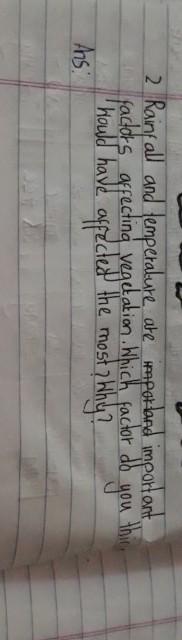 2 Rainfall and temperature are important important
factors affecting vegetation. Which factor do you thin
would have affected the most? Why?
Ans: